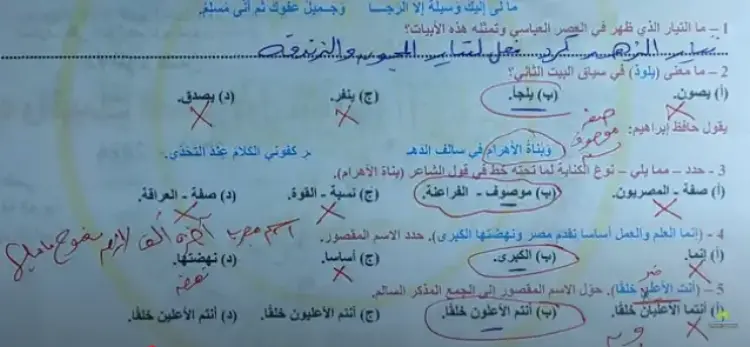 ما لي إليك وسيلة إلا الرجا وجميل عفوك ثم أني مسلم.
1 – ما التيار الذي ظهر في العصر العباسي وتمثله هذه الأبيات؟
تيار الزهد كرد فعل لتيار المجون والزندقة
2 – ما معنى (يلوذ) في سياق البيت الثاني؟
(أ) يصون. (ب) يلجأ. (ج) ينفر. (د) يصدق.
صفة
موصوف
يقول حافظ إبراهيم:
وبناة الأهرام في سالف الدهـ ر كفوني الكلام عند التحدي.
3 - حدد – مما يلي – نوع الكناية لما تحته خط في قول الشاعر (بناة الأهرام).
(أ) صفة - المصريون. (ب) موصوف - الفراعنة. (ج) نسبة - القوة. (د) صفة - العراقة.
اسم معرب آخره ألف لازمة مفتوح ما قبلها
4 - (إنما العلم والعمل أساسا تقدم مصر ونهضتها الكبرى). حدد الاسم المقصور.
(أ) إنما. (ب) الكبرى. (ج) أساسا. (د) نهضتها.
نهضة
5 – (أنت الأعلى خلقًا). حوّل الاسم المقصور إلى الجمع المذكر السالم.
(أ) أنتما الأعليان خلقًا. (ب) أنتم الأعلون خلقًا. (ج) أنتم الأعليون خلقًا. (د) أنتم الأعلين خلقًا.